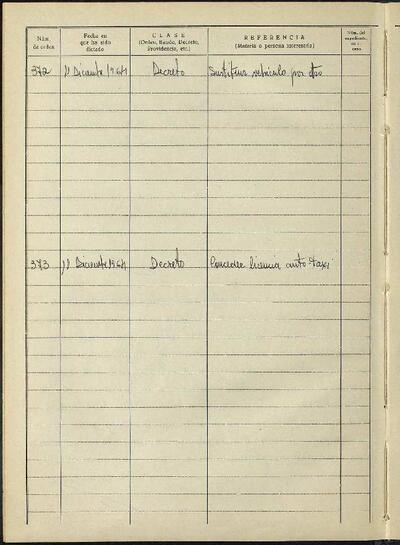 Núm. de orden
Fecha en que ha sido dictado
CLASE
(Orden, Bando, Decreto, Providencia, etc.)
REFERENCIA
(Materia o persona interesada)
Núm. del
372 11 Diciembre 1964 Decreto Sustituir vehiculo por otro
373 11 Diciembre 1964 Decreto Conceder licencia auto-taxi